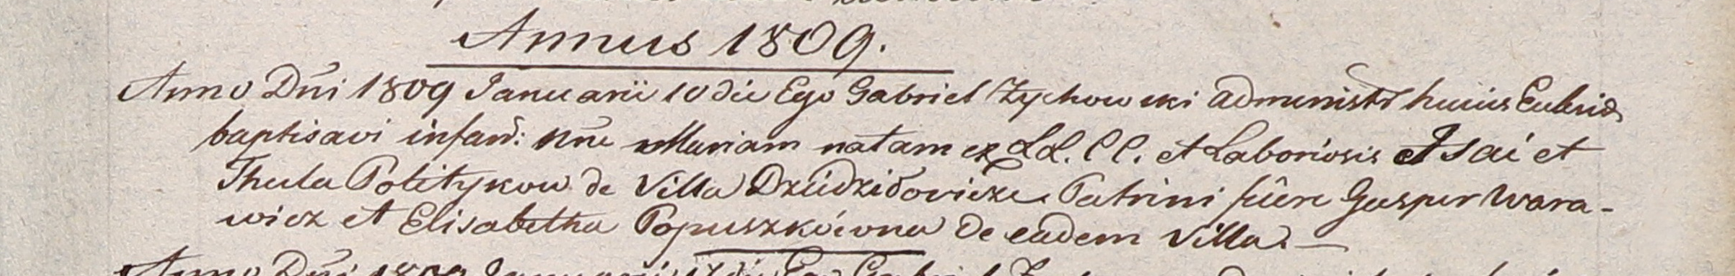 Annus 1809.
Anno Dni 1809 Januarii 10 die Ego Gabriel Zychowski administr huius Ecclesiae
baptisavi infan: nne Mariam natam ex LL. CC. et Laboriosis Isai et
Thecla Politykow de Villa Dzüdziłovicze. Patrini fuere Gasper Wara-
wicz et Elisabetha Popuszkówna de eadem Villa. —
Anno Dni 1809 Januarii 17 die Ego Gabriel